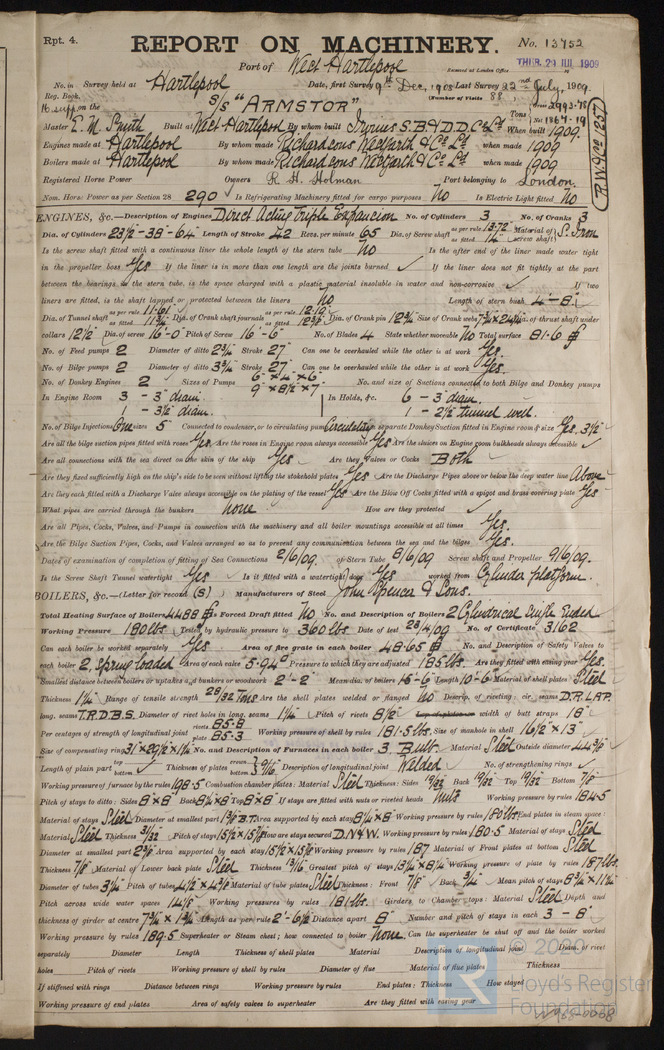 Rpt. 4.
REPORT ON MACHINERY. No. 13752
Port of West Hartlepool Received at London Office THUR. 29 JUL 1909
No. in Survey held at Hartlepool Date, first Survey 9th Dec, 1908 Last Survey 22nd July, 1909.
Reg. Book. (Number of Visits 88)
16 supp. on the S/S "ARMSTOR" Tons Gross 2993.78 Net 1867.19
Master E. N. Smith Built at West Hartlepool By whom built Irvines S.B. & D.D. Co Ltd When built 1909.
Engines made at Hartlepool By whom made Richardsons Westgarth & Co Ltd when made 1909
Boilers made at Hartlepool By whom made Richardsons Westgarth & Co Ltd when made 1909
Registered Horse Power Owners R. H. Holman Port belonging to London.
Nom. Horse Power as per Section 28 290 Is Refrigerating Machinery fitted for cargo purposes No Is Electric Light fitted No
ENGINES, &c.—Description of Engines Direct Acting Triple Expansion No. of Cylinders 3 No. of Cranks 3
Dia. of Cylinders 23½-38-64 Length of Stroke 42 Revs. per minute 65 Dia. of Screw shaft as per rule 13.72 as fitted 14 Material of screw shaft S. Iron
Is the screw shaft fitted with a continuous liner the whole length of the stern tube No Is the after end of the liner made water tight
in the propeller boss Yes If the liner is in more than one length are the joints burned ✓ If the liner does not fit tightly at the part
between the bearings in the stern tube, is the space charged with a plastic material insoluble in water and non-corrosive ✓ If two
liners are fitted, is the shaft lapped or protected between the liners No Length of stern bush 4'-8"
Dia. of Tunnel shaft as per rule 11.61 as fitted 11¾ Dia. of Crank shaft journals as per rule 12.19 as fitted 12⅜ Dia. of Crank pin 12¾ Size of Crank webs Dia. of thrust shaft under
collars 12½ Dia. of screw 16'-0" Pitch of Screw 16'-6" No. of Blades 4 State whether moveable No Total surface 81.6
No. of Feed pumps 2 Diameter of ditto 2¾ Stroke 27 Can one be overhauled while the other is at work Yes.
No. of Bilge pumps 2 Diameter of ditto 3¾ Stroke 27 Can one be overhauled while the other is at work Yes.
No. of Donkey Engines 2 Sizes of Pumps 6"x4"x6" 9"x8½"x7" No. and size of Suctions connected to both Bilge and Donkey pumps
In Engine Room 3 - 3" diam. In Holds, &c. 6 - 3" diam.
1 - 3½" diam. 1 - 2½" tunnel well.
No. of Bilge Injections One sizes 5" Connected to condenser, or to circulating pump Circulating Is a separate Donkey Suction fitted in Engine room & size Yes, 3½"
Are all the bilge suction pipes fitted with roses Yes Are the roses in Engine room always accessible Yes Are the sluices on Engine room bulkheads always accessible ✓
Are all connections with the sea direct on the skin of the ship Yes Are they Valves or Cocks Both
Are they fixed sufficiently high on the ship's side to be seen without lifting the stokehold plates Yes Are the Discharge Pipes above or below the deep water line Above
Are they each fitted with a Discharge Valve always accessible on the plating of the vessel Yes Are the Blow Off Cocks fitted with a spigot and brass covering plate Yes
What pipes are carried through the bunkers None How are they protected ✓
Are all Pipes, Cocks, Valves, and Pumps in connection with the machinery and all boiler mountings accessible at all times Yes.
Are the Bilge Suction Pipes, Cocks, and Valves arranged so as to prevent any communication between the sea and the bilges Yes.
Dates of examination of completion of fitting of Sea Connections 2/6/09. of Stern Tube 8/6/09 Screw shaft and Propeller 9/6/09.
Is the Screw Shaft Tunnel watertight Yes Is it fitted with a watertight door Yes worked from Cylinder platform.
BOILERS, &c.—(Letter for record (S)) Manufacturers of Steel John Spencer & Sons.
Total Heating Surface of Boilers 4488 Is Forced Draft fitted No No. and Description of Boilers 2 Cylindrical Single Ended
Working Pressure 180 lbs Tested by hydraulic pressure to 360 lbs Date of test 23/4/09 No. of Certificate 3162
Can each boiler be worked separately Yes Area of fire grate in each boiler 48.65 No. and Description of Safety Valves to
each boiler 2, Spring loaded Area of each valve 5.94 Pressure to which they are adjusted 185 lbs. Are they fitted with easing gear Yes.
Smallest distance between boilers or uptakes and bunkers or woodwork 2'-2" Mean dia. of boilers 15-6 Length 10-6 Material of shell plates Steel
Thickness 1¼ Range of tensile strength 28/32 Tons Are the shell plates welded or flanged No Descrip. of riveting: cir. seams D.R. LAP.
long. seams T.R.D.B.S. Diameter of rivet holes in long. seams 1¼ Pitch of rivets 8½ width of butt straps 18"
Per centages of strength of longitudinal joint rivets 85.8 plate 85.3 Working pressure of shell by rules 181.5 lbs. Size of manhole in shell 16½ x 13"
Size of compensating ring No. and Description of Furnaces in each boiler 3 Bulb. Material Steel Outside diameter 44⅜"
Length of plain part top bottom Thickness of plates crown bottom 9/16 Description of longitudinal joint Welded No. of strengthening rings ✓
Working pressure of furnace by the rules 198.5 Combustion chamber plates: Material Steel Thickness: Sides 19/32 Back 19/32 Top 19/32 Bottom 7/8"
Pitch of stays to ditto: Sides 8x8 Back 8¼x8 Top 8x8 If stays are fitted with nuts or riveted heads Nuts Working pressure by rules 184.5
Material of stays Steel Diameter at smallest part Area supported by each stay 8¼x8 Working pressure by rules 180 lbs End plates in steam space:
Material Steel Thickness Pitch of stays How are stays secured D.N&W. Working pressure by rules 180.5 Material of stays Steel
Diameter at smallest part Area supported by each stay Working pressure by rules 187 Material of Front plates at bottom Steel
Thickness 7/8 Material of Lower back plate Steel Thickness 13/16 Greatest pitch of stays 13¼x8¼ Working pressure of plate by rules 187 lbs.
Diameter of tubes 3¼ Pitch of tubes 4½ x 4⅜ Material of tube plates Steel Thickness: Front 7/8 Back ¾ Mean pitch of stays
Pitch across wide water spaces 14⅞ Working pressures by rules 181 lbs. Girders to Chamber tops: Material Steel Depth and
thickness of girder at centre 7¾ x 1¾ Length as per rule 2'-6½ Distance apart 8" Number and pitch of stays in each 3 - 8"
Working pressure by rules 189.5 Superheater or Steam chest; how connected to boiler None. Can the superheater be shut off and the boiler worked
separately Diameter Length Thickness of shell plates Material Description of longitudinal joint Diam. of rivet
holes Pitch of rivets Working pressure of shell by rules Diameter of flue Material of flue plates Thickness
If stiffened with rings Distance between rings Working pressure by rules End plates: Thickness How stayed
Working pressure of end plates Area of safety valves to superheater Are they fitted with easing gear
© 2020
Lloyd's Register
Foundation
W955-0008